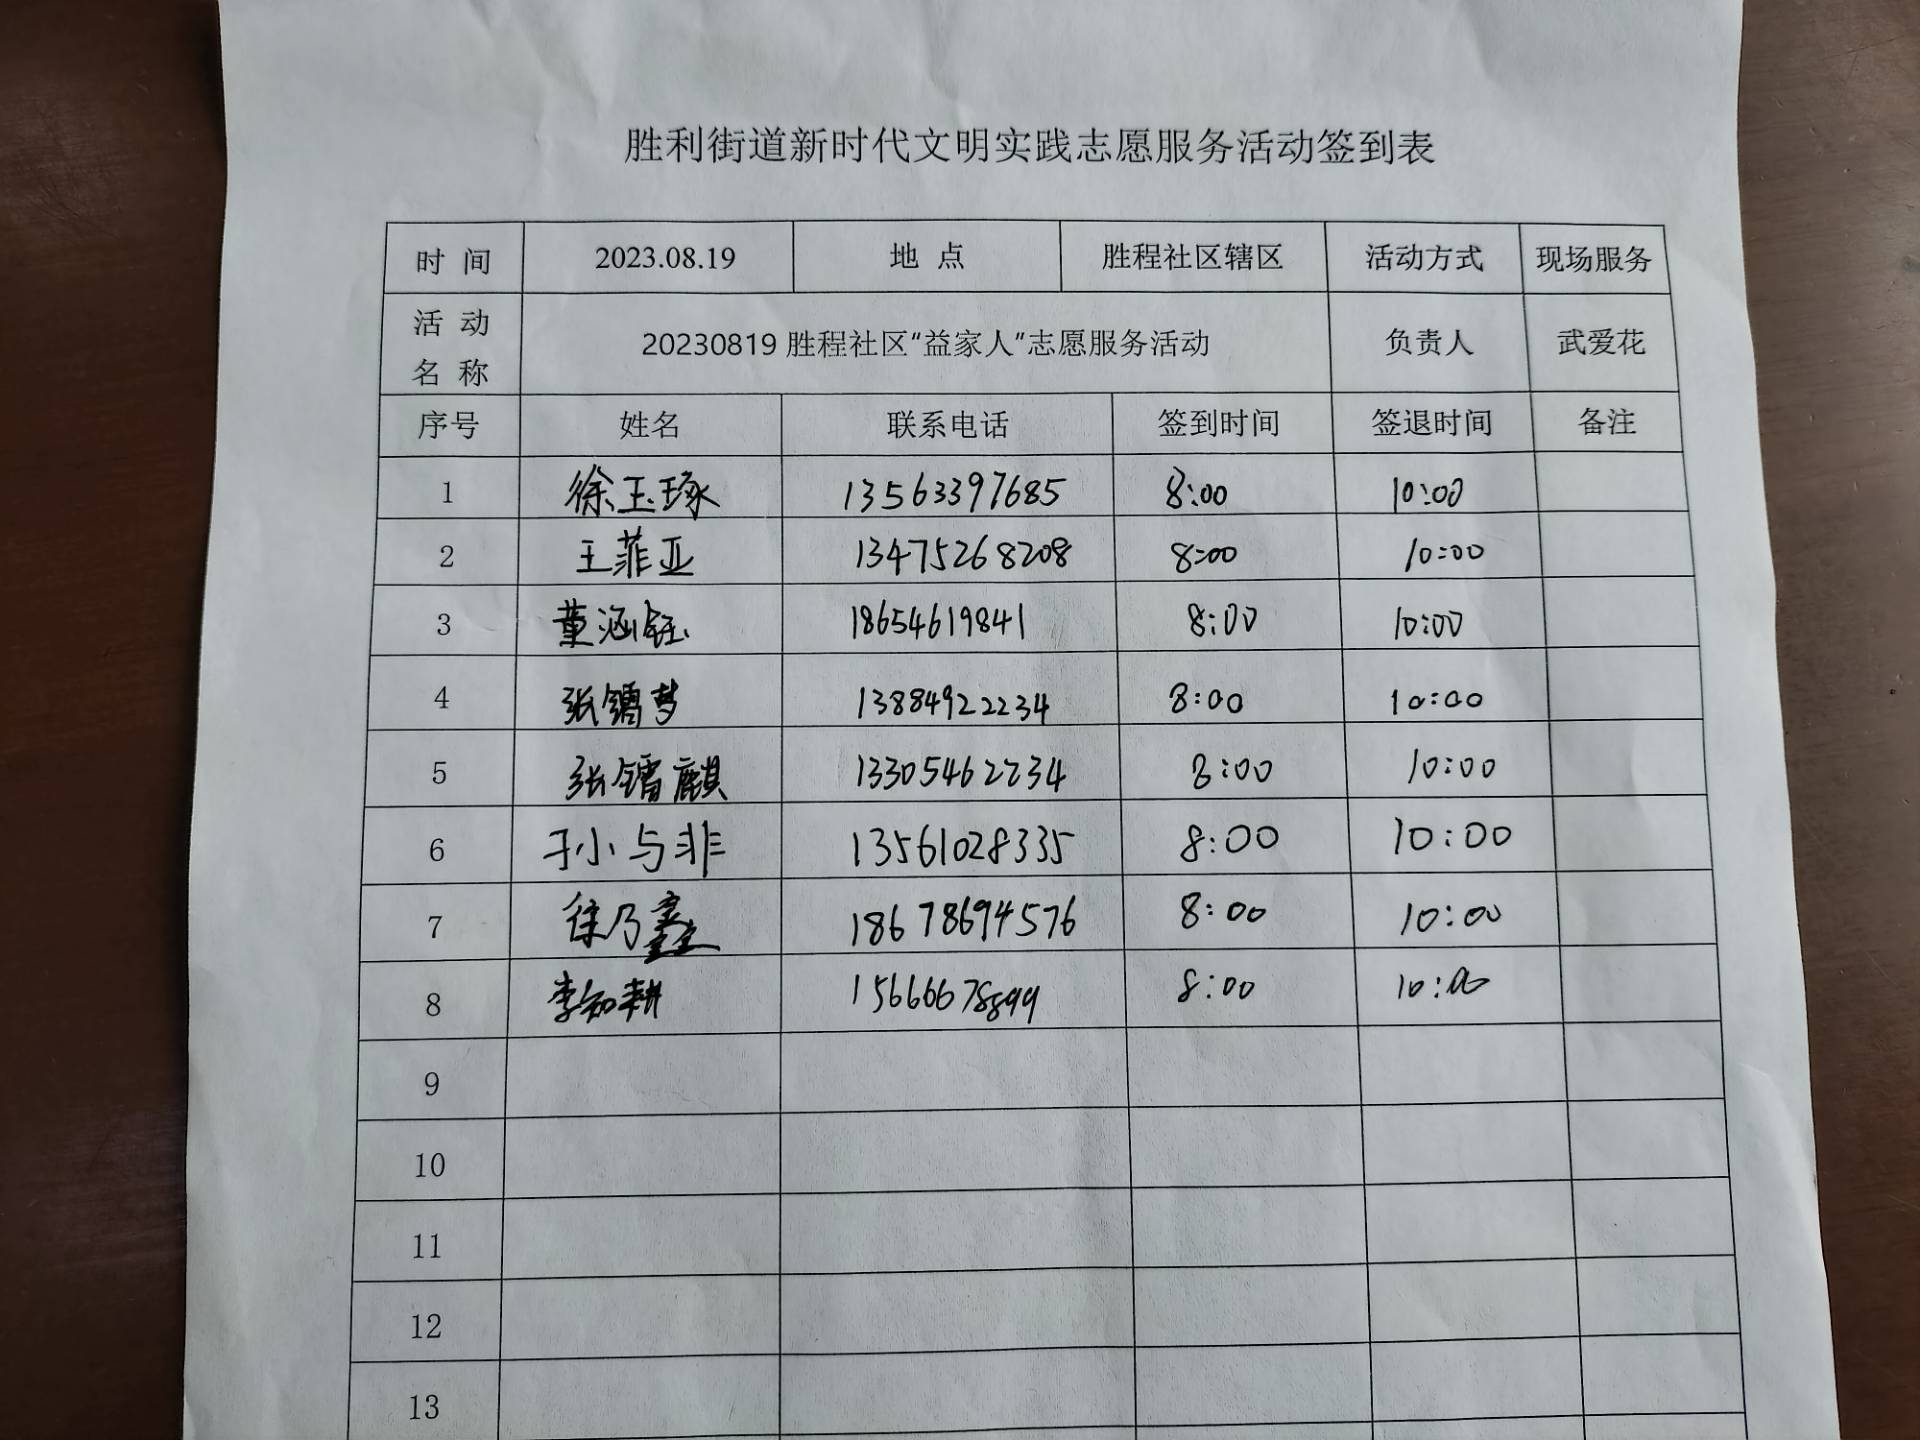 胜利街道新时代文明实践志愿服务活动签到表
时 间 2023.08.19 地 点 胜程社区辖区 活动方式 现场服务
活 动 名 称 20230819 胜程社区“益家人”志愿服务活动 负责人 武爱花
序号 姓名 联系电话 签到时间 签退时间 备注
1 徐玉琢 13563397685 8:00 10:00
2 王菲亚 13475268208 8:00 10:00
3 董涵钰 18654619841 8:00 10:00
4 张镭梦 13884922234 8:00 10:00
5 张镭麒 13305462234 8:00 10:00
6 于小与非 13561028335 8:00 10:00
7 徐乃鑫 18678694576 8:00 10:00
8 李知耕 15666678899 8:00 10:00
9
10
11
12
13